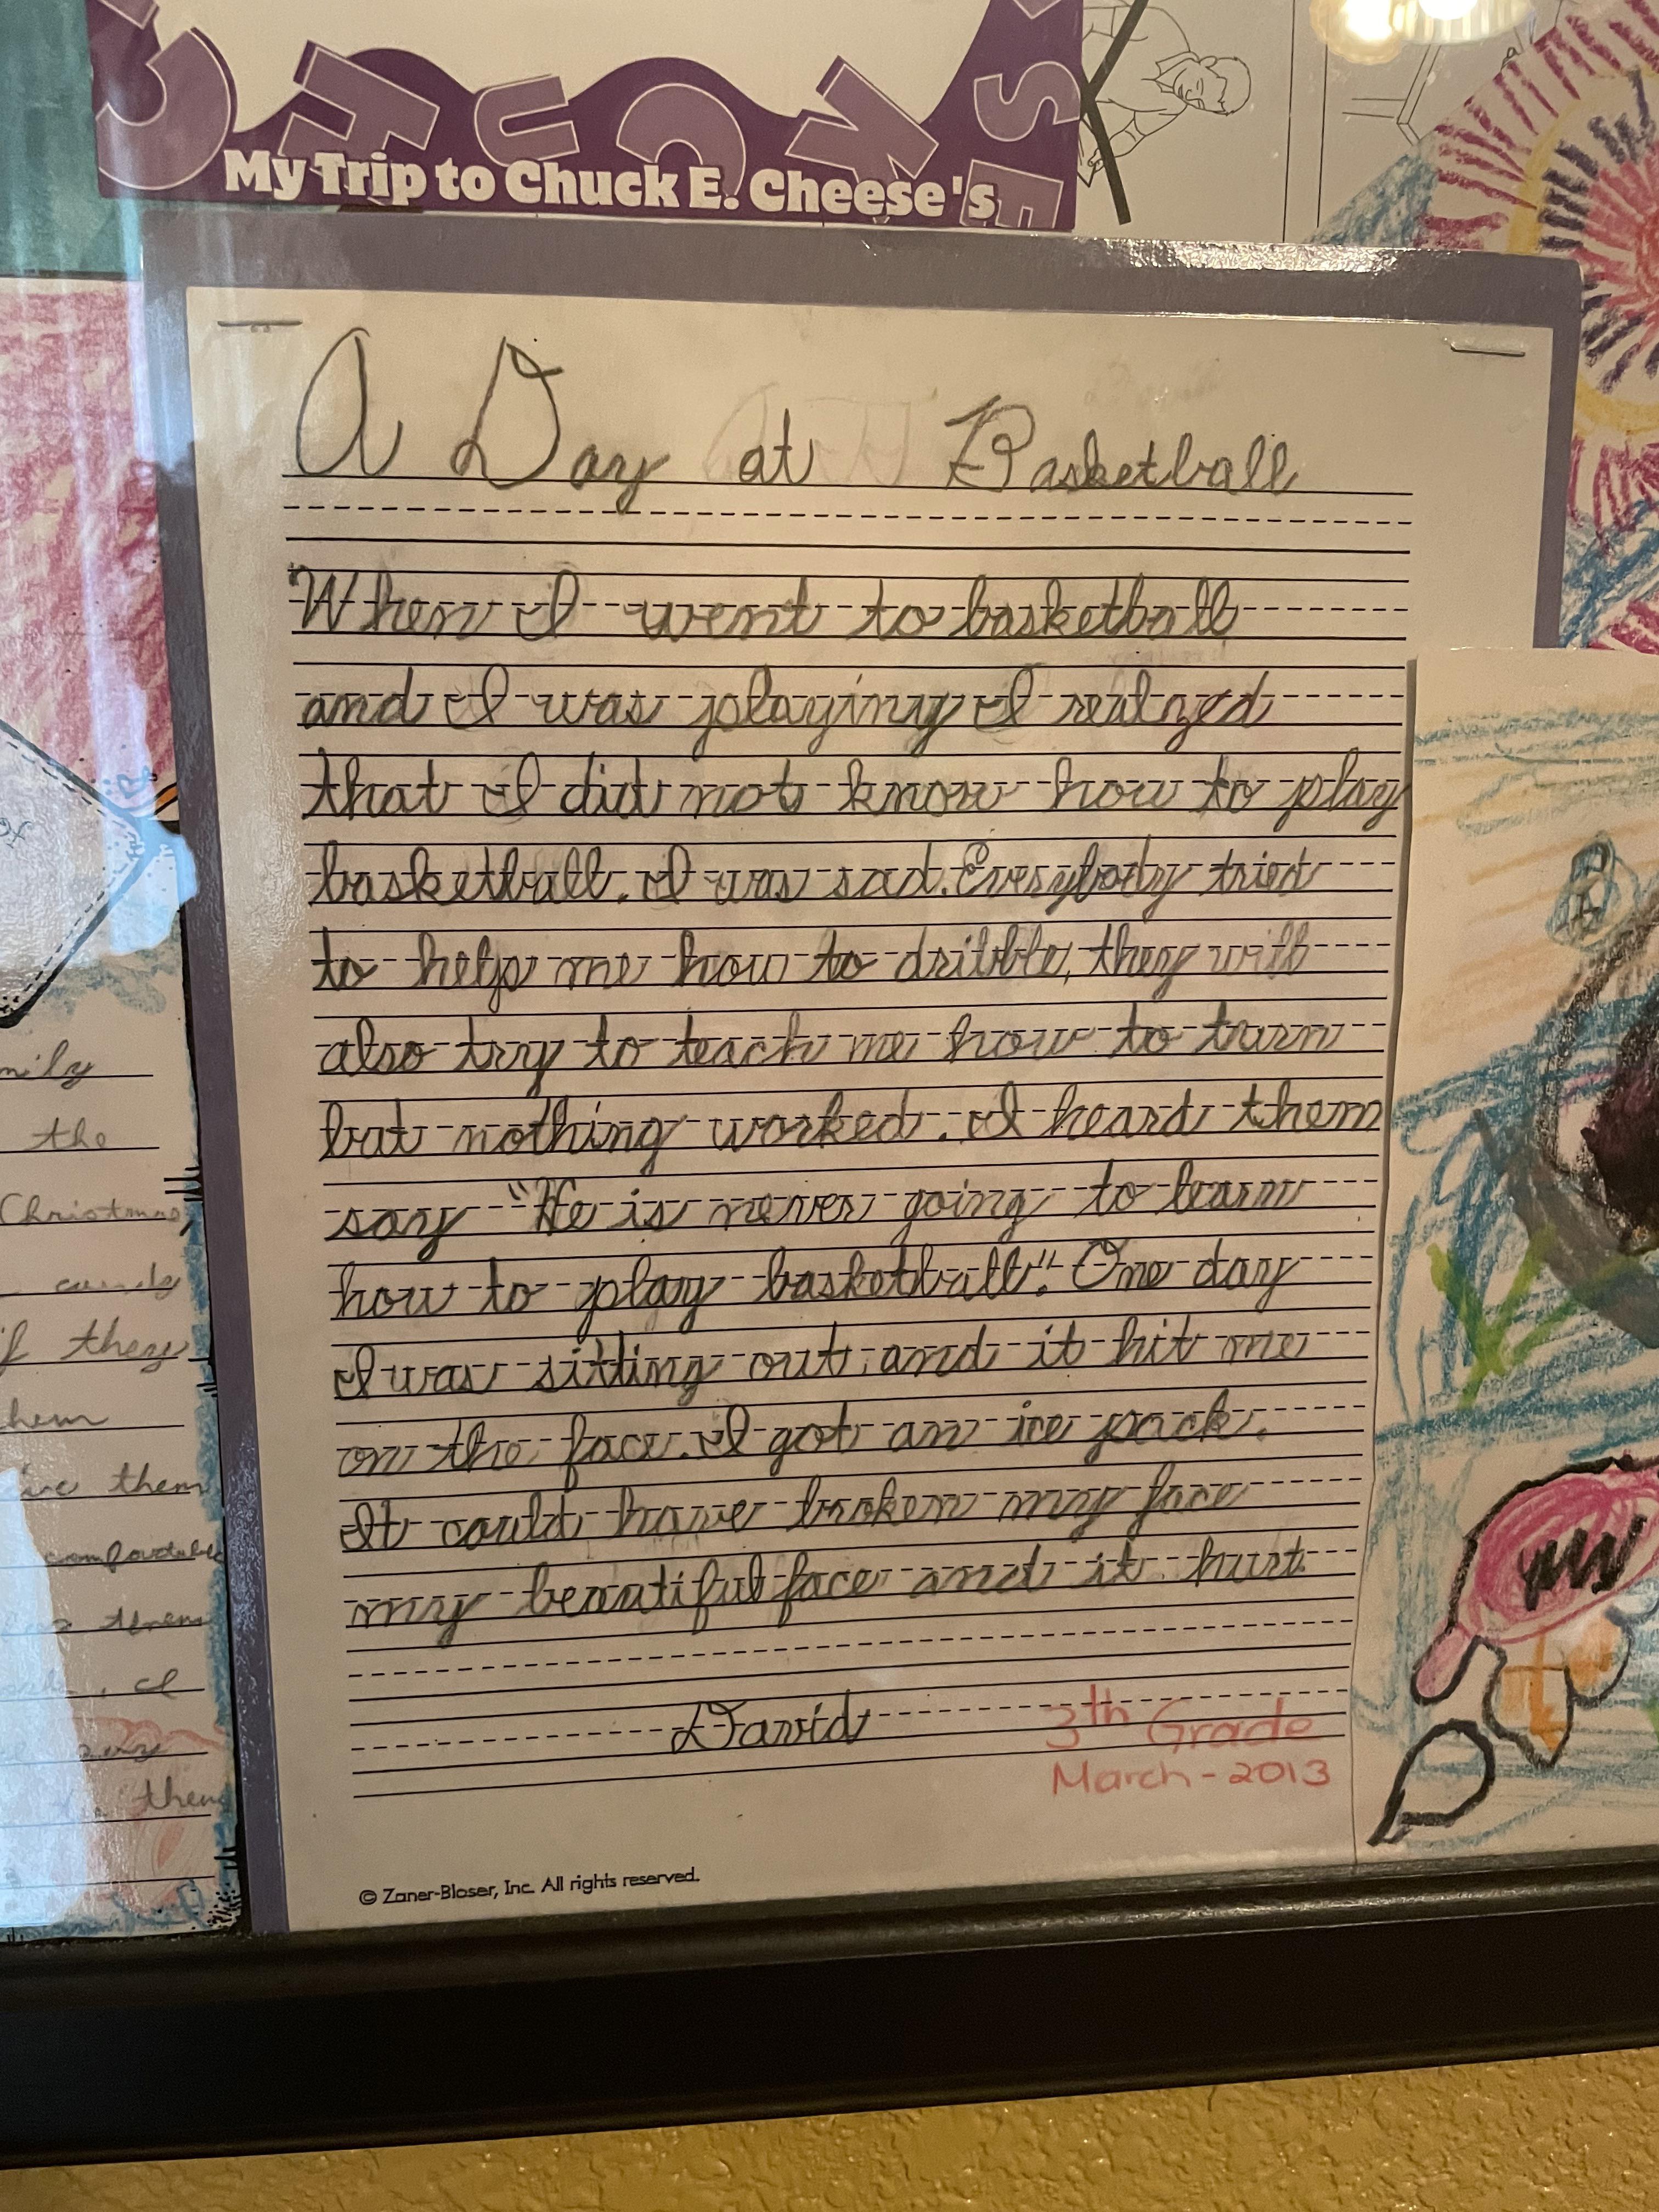 CHUCK E
My Trip to Chuck E. Cheese's
A Day at Basketball
When I went to basketball
and I was playing I realized
that I did not know how to play
basketball. I was sad. Everybody tried
to help me how to dribble, they will
also try to teach me how to turn
but nothing worked. I heard them
say "He is never going to learn
how to play basketball". One day
I was sitting out, and it hit me
on the face. I got an ice pack.
It could have broken my face
my beautiful face and it hurt.
David
3th Grade
March-2013
© Zaner-Bloser, Inc. All rights reserved.
the
Christmas
candy
they
them
comfortable
them
, I
them